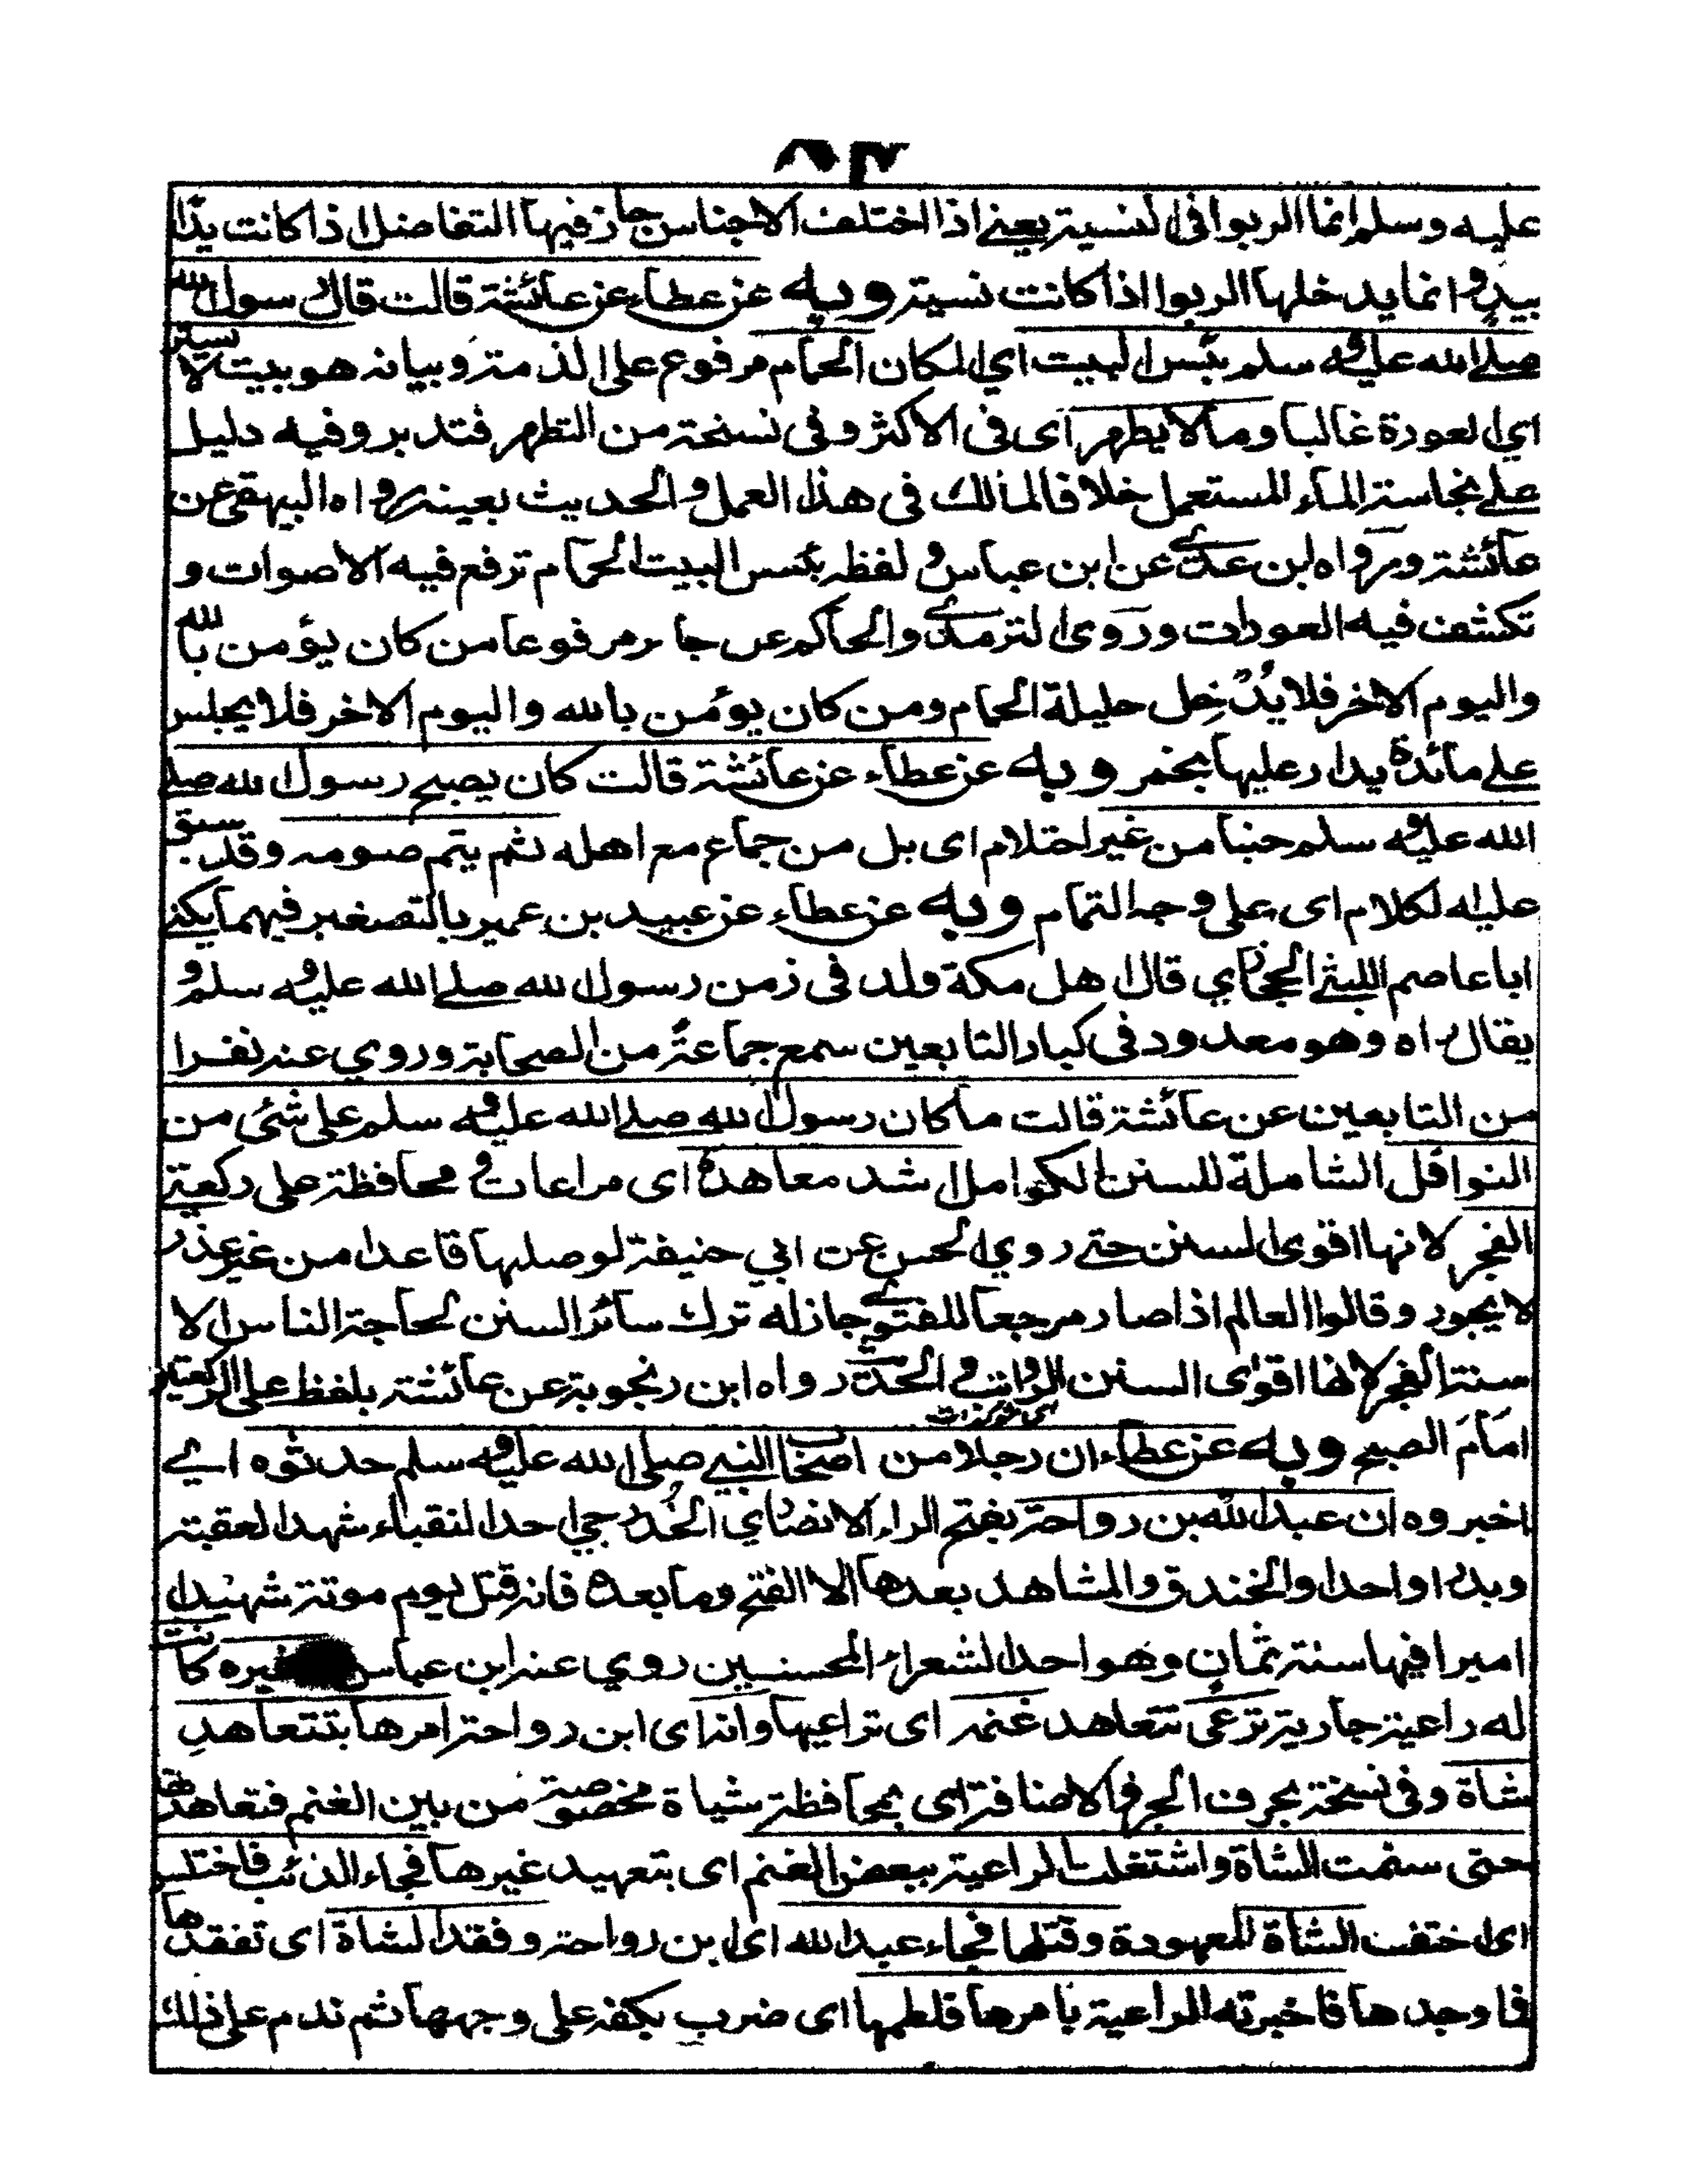 عليه وسلم انما الربوا في النسية يعني اذا اختلف الاجناس جاز فيها التفاضل اذا كانت يدًا
بيد وانما يدخلها الربوا اذا كانت نسية وبه عن عطاء عن عائشة قالت قال رسول الله
صلے الله عليه وسلم بئس البيت اي المكان الحمام مرفوع على الذمة وبيانه هو بيت لا يستر
اي العورة غالبا وماء لا يطهر اى فى الاكثر وفى نسخة من التطهر فتدبر وفيه دليل
علے نجاسة الماء المستعمل خلافا لمالك فى هذا العمل والحديث بعينه رواه البيهقي عن
عائشة ورواه ابن عدي عن ابن عباس ولفظه بئس البيت الحمام ترفع فيه الاصوات و
تكشف فيه العورات وروى الترمذي والحاكم عن جابر مرفوعا من كان يؤمن بالله
واليوم الاخر فلا يدخل حليلة الحمام ومن كان يؤمن بالله واليوم الاخر فلا يجلس
علے مائدة يدار عليها بخمر وبه عن عطاء عن عائشة قالت كان يصبح رسول الله صلے
الله عليه وسلم جنبا من غير احتلام اى بل من جماع مع اهله ثم يتم صومه وقد سبق
عليه الكلام اى على وجه التمام وبه عن عطاء عن عبيد بن عمير بالتصغير فيهما يكنى
ابا عاصم الليثي الحجازي قال اهل مكة ولد فى زمن رسول الله صلے الله عليه وسلم و
يقال راه وهو معدود فى كبار التابعين سمع جماعة من الصحابة وروي عنه نفرا
من التابعين عن عائشة قالت ما كان رسول الله صلے الله عليه وسلم على شئى من
النوافل الشاملة للسنن الكوامل اشد معاهدة اى مراعات و محافظة على ركعتي
الفجر لانها اقوى السنن حتے روي الحسن عن ابي حنيفة لو صلها قاعدا من غير عذر
لا يجوز وقالوا العالم اذا صار مرجعا للفتوي جاز له ترك سائر السنن لحاجة الناس الا
سنة الفجر لانها اقوى السنن الرواتب و الحديث رواه ابن زنجوية عن عائشة بلفظ على الركعتين
امامَ الصبح وبه عن عطاء ان رجلا من اصحاب النبي صلى الله عليه وسلم حدثوه اي
اخبروه ان عبد الله بن رواحة بفتح الراء الانصاري الخزرجي احد النقباء شهد العقبة
وبدرا واحدا والخندق والمشاهد بعدها الا الفتح وما بعده فانه قتل يوم موتة شهيدا
اميرا فيها سنة ثمان وهو احد الشعراء المحسنين روي عنه ابن عباس وغيره كانت
له راعية جارية ترعى تتعاهد غنمه اى تراعيها وانه اى ابن رواحة امرها بتتعاهد
شاة وفى نسخة بحرف الجر والاضافة اى بمحافظة شياة مخصوصة من بين الغنم فتعاهدها
حتى سمنت الشاة واشتغلت الراعية ببعض الغنم اى بتعهيد غيرها فجاء الذئب فاختلس
اى اختفت الشاة المعهودة وقتلها فجاء عبد الله اى ابن رواحة وفقد الشاة اى تفقدها
فما وجدها فاخبرته الراعية بامرها فلطمها اى ضرب بكفه على وجهها ثم ندم على ذلك